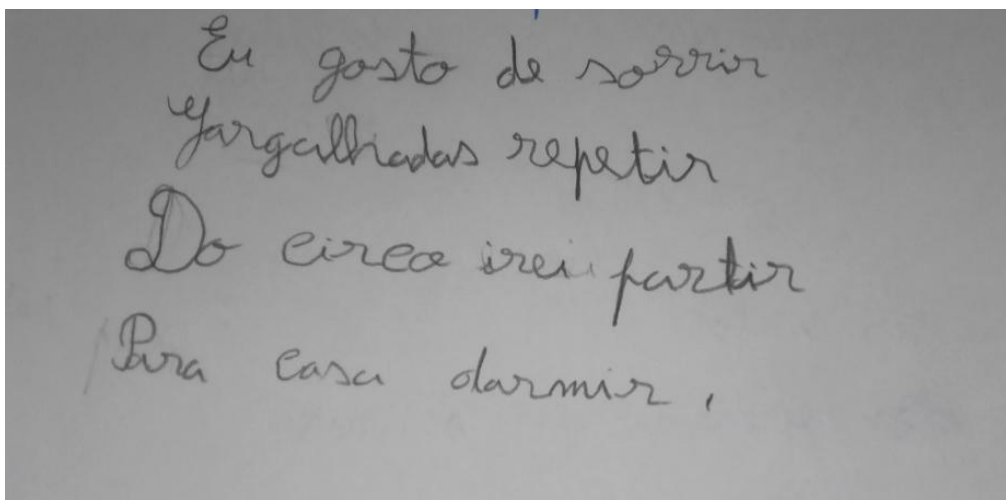 Eu gosto de sorrir
Gargalhadas repetir
Do circo irei partir
Para casa dormir.